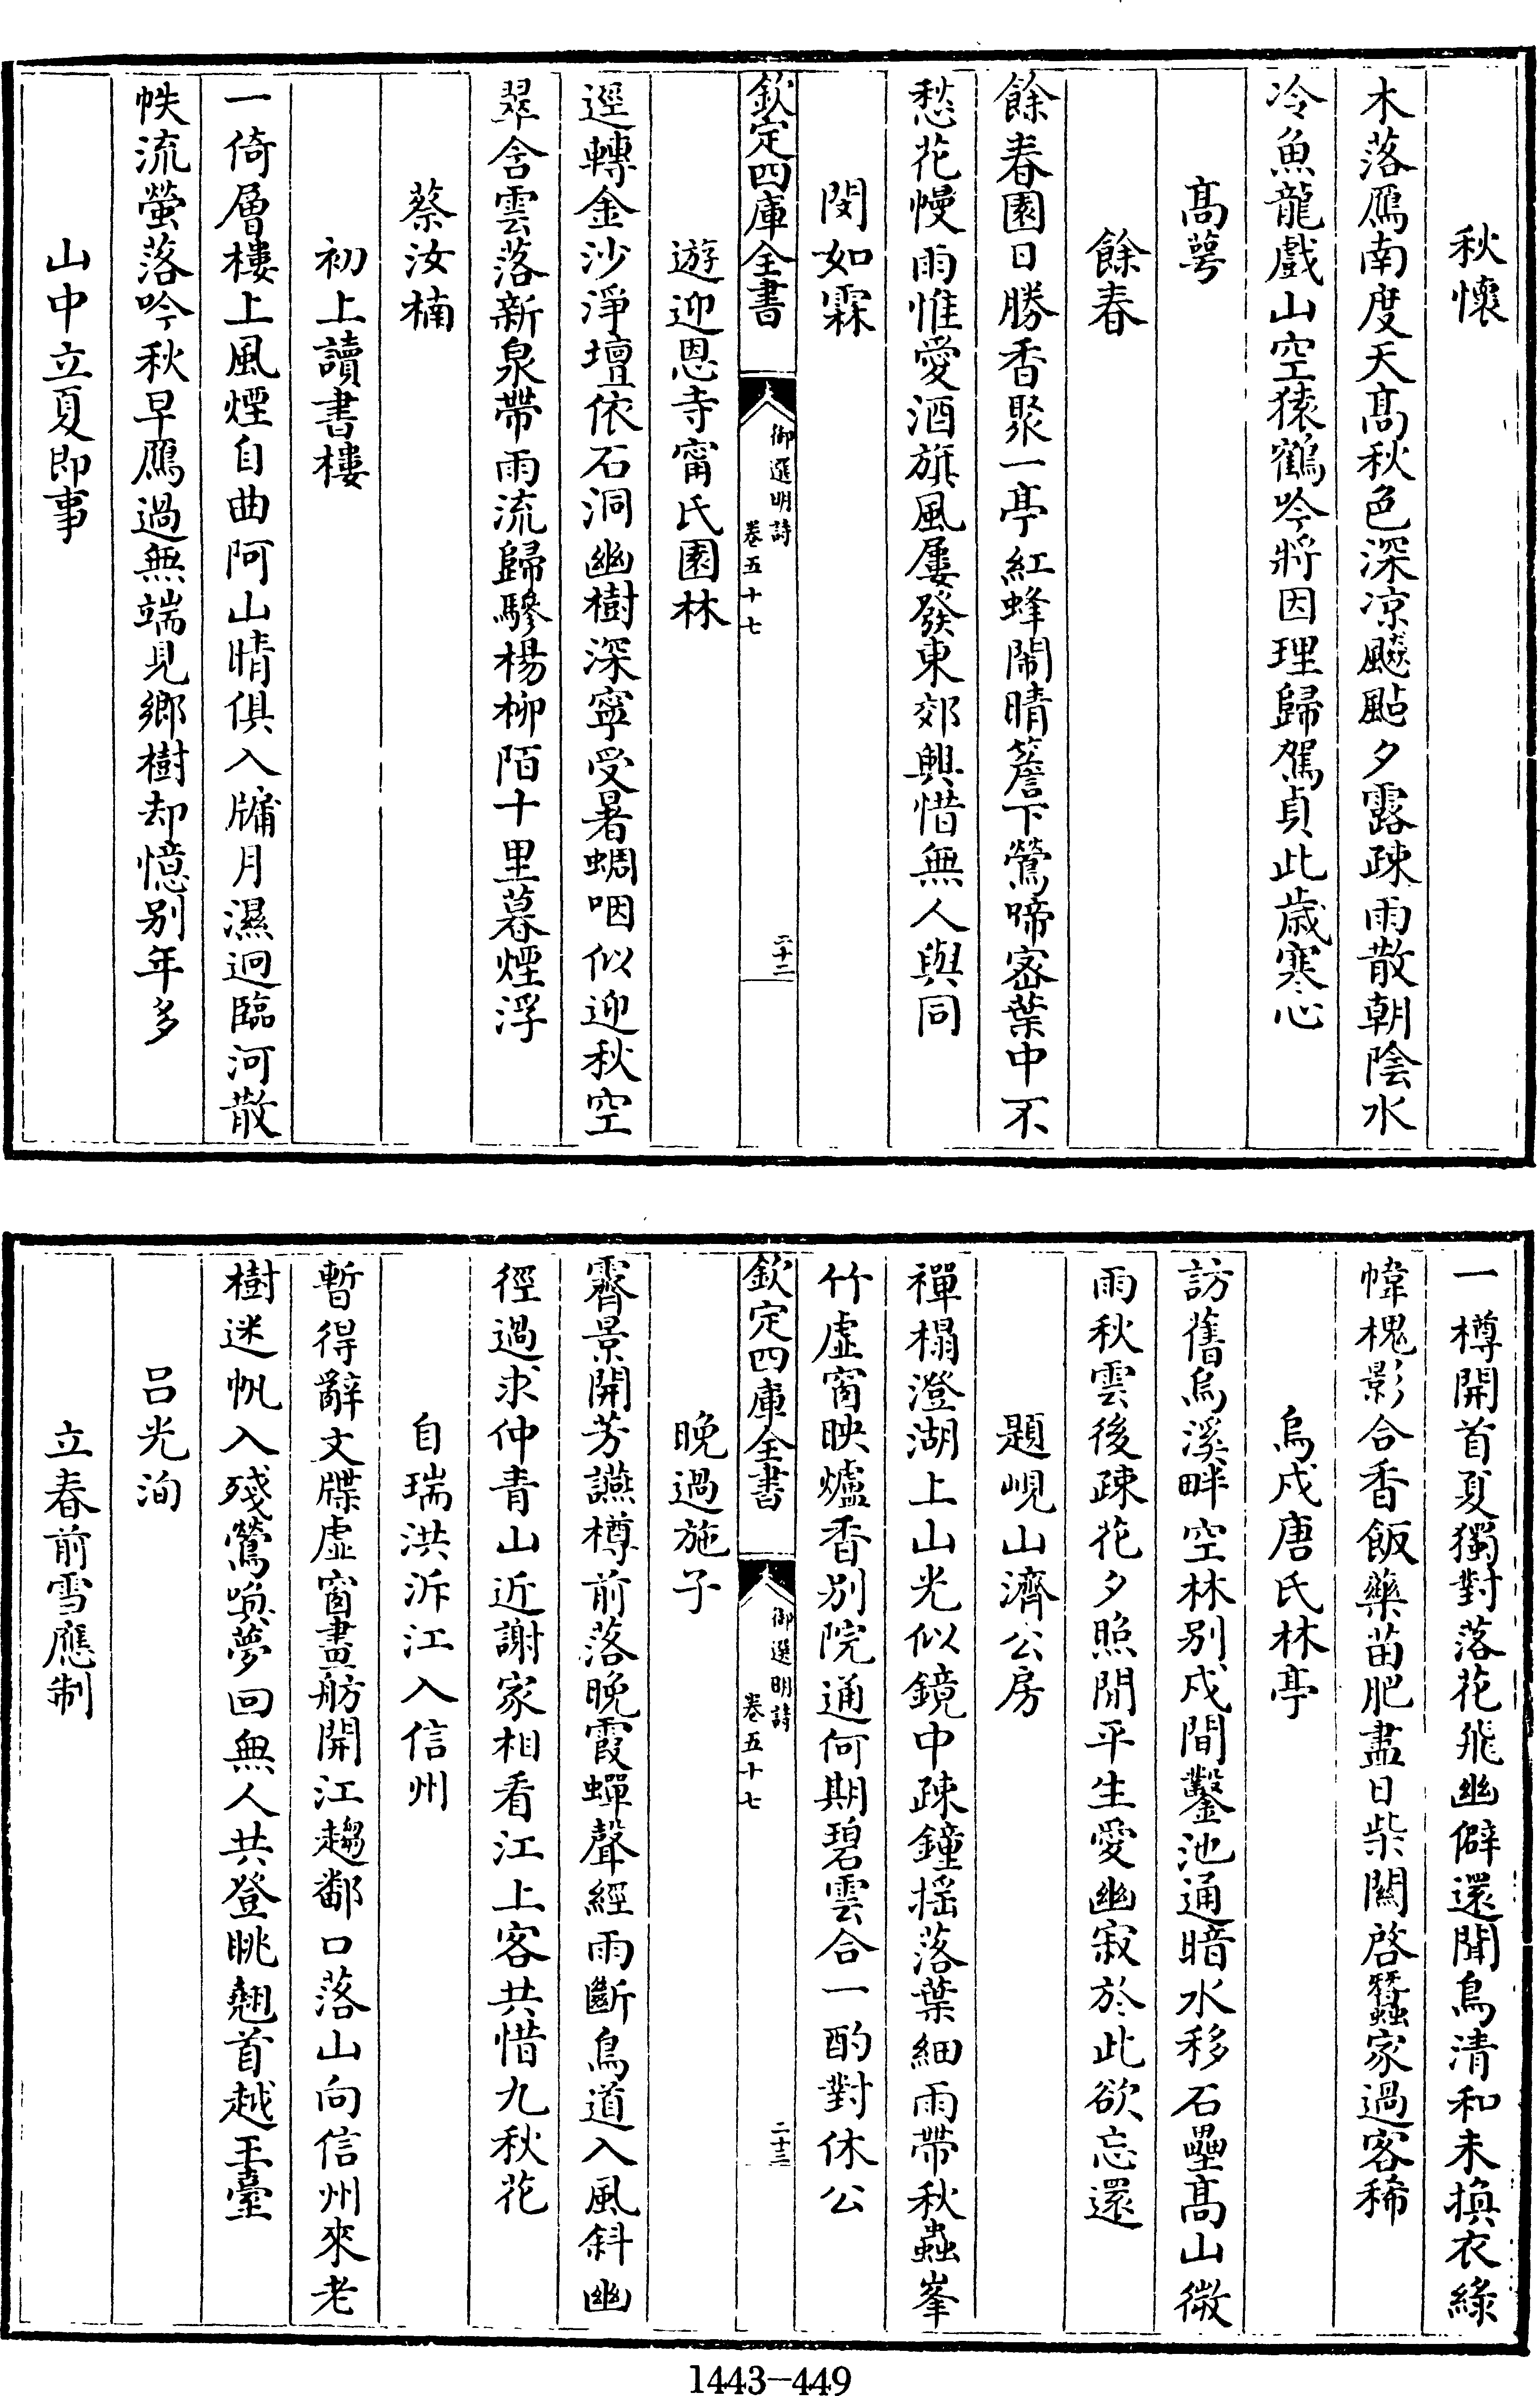 秋懷
木落鴈南度天髙秋色深凉飈颭夕露疎雨散朝陰水
冷魚龍戲山空猿鶴吟將因理歸駕貞此歲寒心
髙萼
餘春
餘春園日勝香聚一亭紅蜂鬧晴簷下鶯啼宻葉中不
愁花幔雨惟愛酒旗風屢發東郊興惜無人與同
閔如霖
欽定四庫全書
御選明詩
卷五十七
二十二
遊迎恩寺甯氏園林
逕轉金沙淨壇依石洞幽樹深寧受暑蜩咽似迎秋空
翠含雲落新泉帶雨流歸驂楊柳陌十里暮煙浮
蔡汝楠
初上讀書樓
一倚層樓上風煙自曲阿山晴俱入牖月濕迥臨河散
帙流螢落吟秋早鴈過無端見鄉樹却憶别年多
山中立夏即事
一樽開首夏獨對落花飛幽僻還聞鳥清和未換衣綠
幃槐影合香飯藥苗肥盡日柴闗啓蠶家過客稀
烏戍唐氏林亭
訪舊烏溪畔空林别戍間鑿池通暗水移石壘髙山微
雨秋雲後疎花夕照閒平生愛幽寂於此欲忘還
題峴山濟公房
禪榻澄湖上山光似鏡中疎鐘揺落葉細雨帶秋蟲峯
竹虛窗映爐香别院通何期碧雲合一酌對休公
欽定四庫全書
御選明詩
卷五十七
二十三
晚過施子
霽景開芳讌樽前落晚霞蟬聲經雨斷鳥道入風斜幽
徑過求仲青山近謝家相看江上客共惜九秋花
自瑞洪泝江入信州
暫得辭文牒虛窗畫舫開江趨鄱口落山向信州來老
樹迷帆入殘鶯喚夢回無人共登眺翹首越王臺
呂光洵
立春前雪應制
1443-449